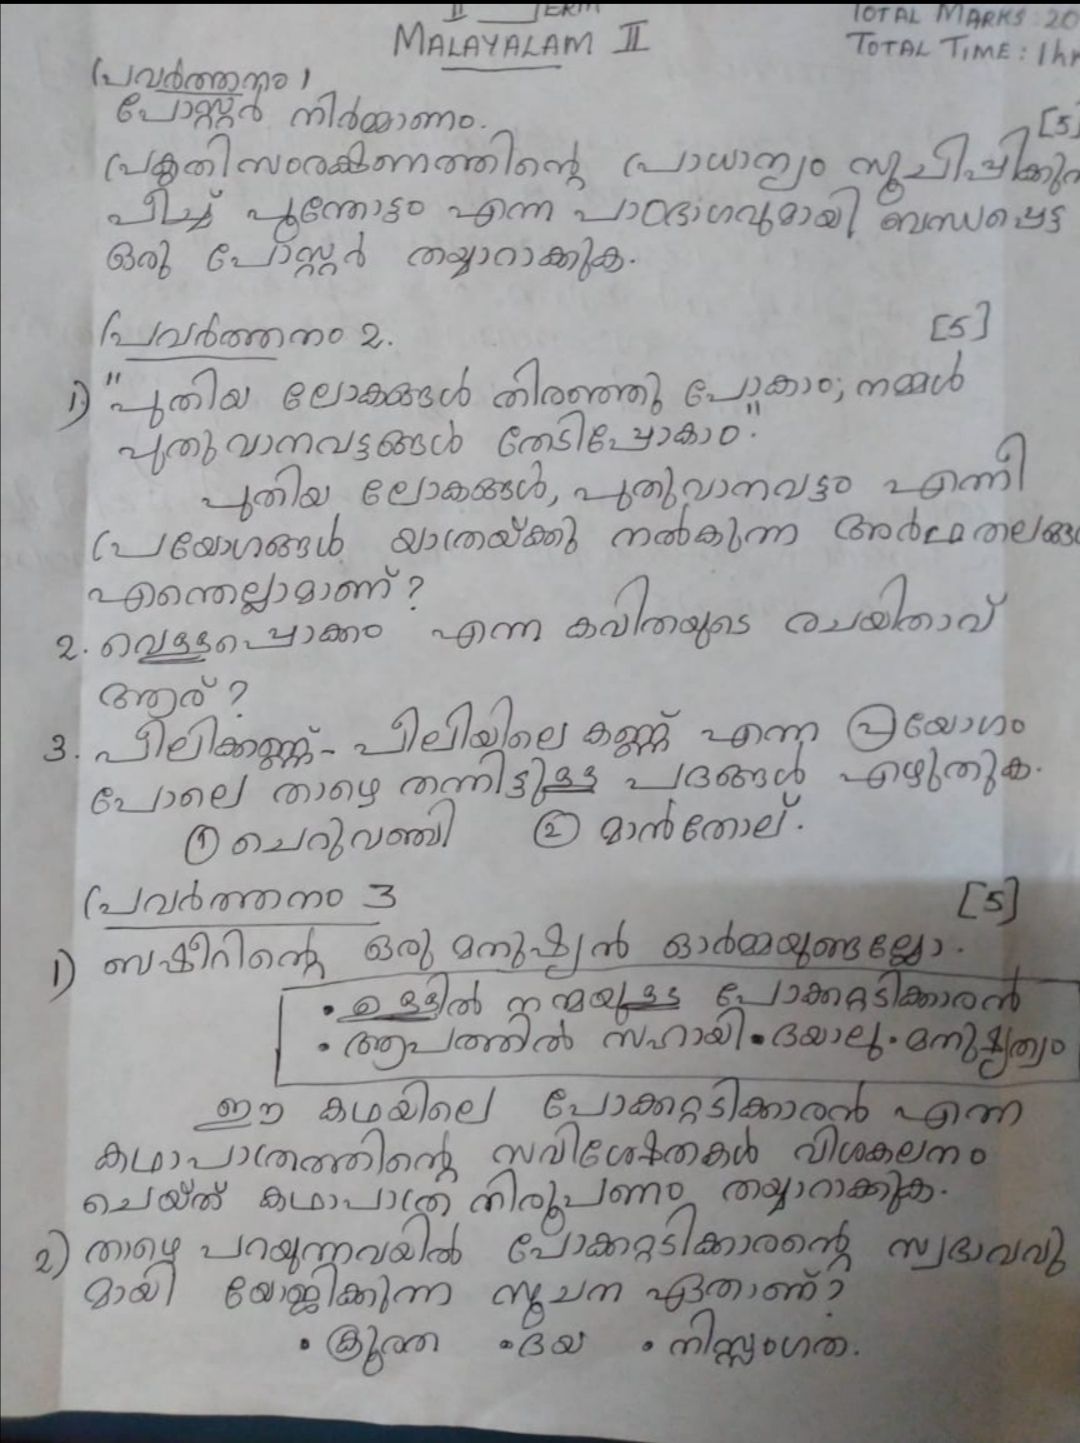 II TERM
TOTAL MARKS: 20
MALAYALAM II
TOTAL TIME: 1hr
പ്രവർത്തനം 1
പോസ്റ്റർ നിർമ്മാണം. [5]
പ്രകൃതിസംരക്ഷണത്തിന്റെ പ്രാധാന്യം സൂചിപ്പിക്കുന്ന
പീച്ചി പൂന്തോട്ടം എന്ന പാഠഭാഗവുമായി ബന്ധപ്പെട്ട
ഒരു പോസ്റ്റർ തയ്യാറാക്കുക.
പ്രവർത്തനം 2. [5]
1) "പുതിയ ലോകങ്ങൾ തിരഞ്ഞു പോകാം; നമ്മൾ
പുതുവാനവട്ടങ്ങൾ തേടിപ്പോകാം."
പുതിയ ലോകങ്ങൾ, പുതുവാനവട്ടം എന്നീ
പ്രയോഗങ്ങൾ യാത്രയ്ക്കു നൽകുന്ന അർത്ഥതലങ്ങ
എന്തെല്ലാമാണ്?
2. വെള്ളപ്പൊക്കം എന്ന കവിതയുടെ രചയിതാവ്
ആര്?
3. പീലിക്കണ്ണ് - പീലിയിലെ കണ്ണ് എന്ന പ്രയോഗം
പോലെ താഴെ തന്നിട്ടുള്ള പദങ്ങൾ എഴുതുക.
① ചെറുവഞ്ചി ② മാൻതോല്.
പ്രവർത്തനം 3 [5]
1) ബഷീറിന്റെ ഒരു മനുഷ്യൻ ഓർമ്മയുണ്ടല്ലോ.
• ഉള്ളിൽ നന്മയുള്ള പോക്കറ്റടിക്കാരൻ
• ആപത്തിൽ സഹായി • ദയാലു • മനുഷ്യത്വം
ഈ കഥയിലെ പോക്കറ്റടിക്കാരൻ എന്ന
കഥാപാത്രത്തിന്റെ സവിശേഷതകൾ വിശകലനം
ചെയ്ത് കഥാപാത്ര നിരൂപണം തയ്യാറാക്കുക.
2) താഴെ പറയുന്നവയിൽ പോക്കറ്റടിക്കാരന്റെ സ്വഭാവവു
മായി യോജിക്കുന്ന സൂചന ഏതാണ്?
• ക്രൂരത • ദയ • നിസ്സംഗത.